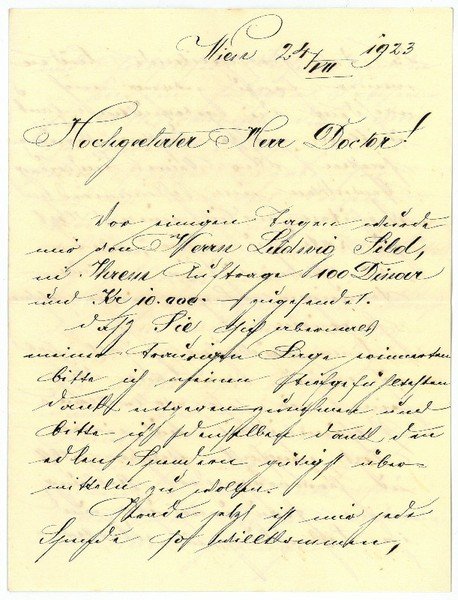 Wien 24/VII 1923
Hochgeehrter Herr Doctor!
Vor einigen Tagen wurde
mir von Herrn Ludwig Sild,
in Ihrem Auftrage 100 Dinar
und Kr 10.000.- zugesendet.
daß Sie sich abermals
meiner traurigen Lage erinnerten
bitte ich meinen tiefgefühltesten
dank entgegen zunehmen und
bitte ich denselben dank den
edlen Spendern gütigst über-
mitteln zu wollen.
Grade jetzt ist mir jede
Spende so willkommen,